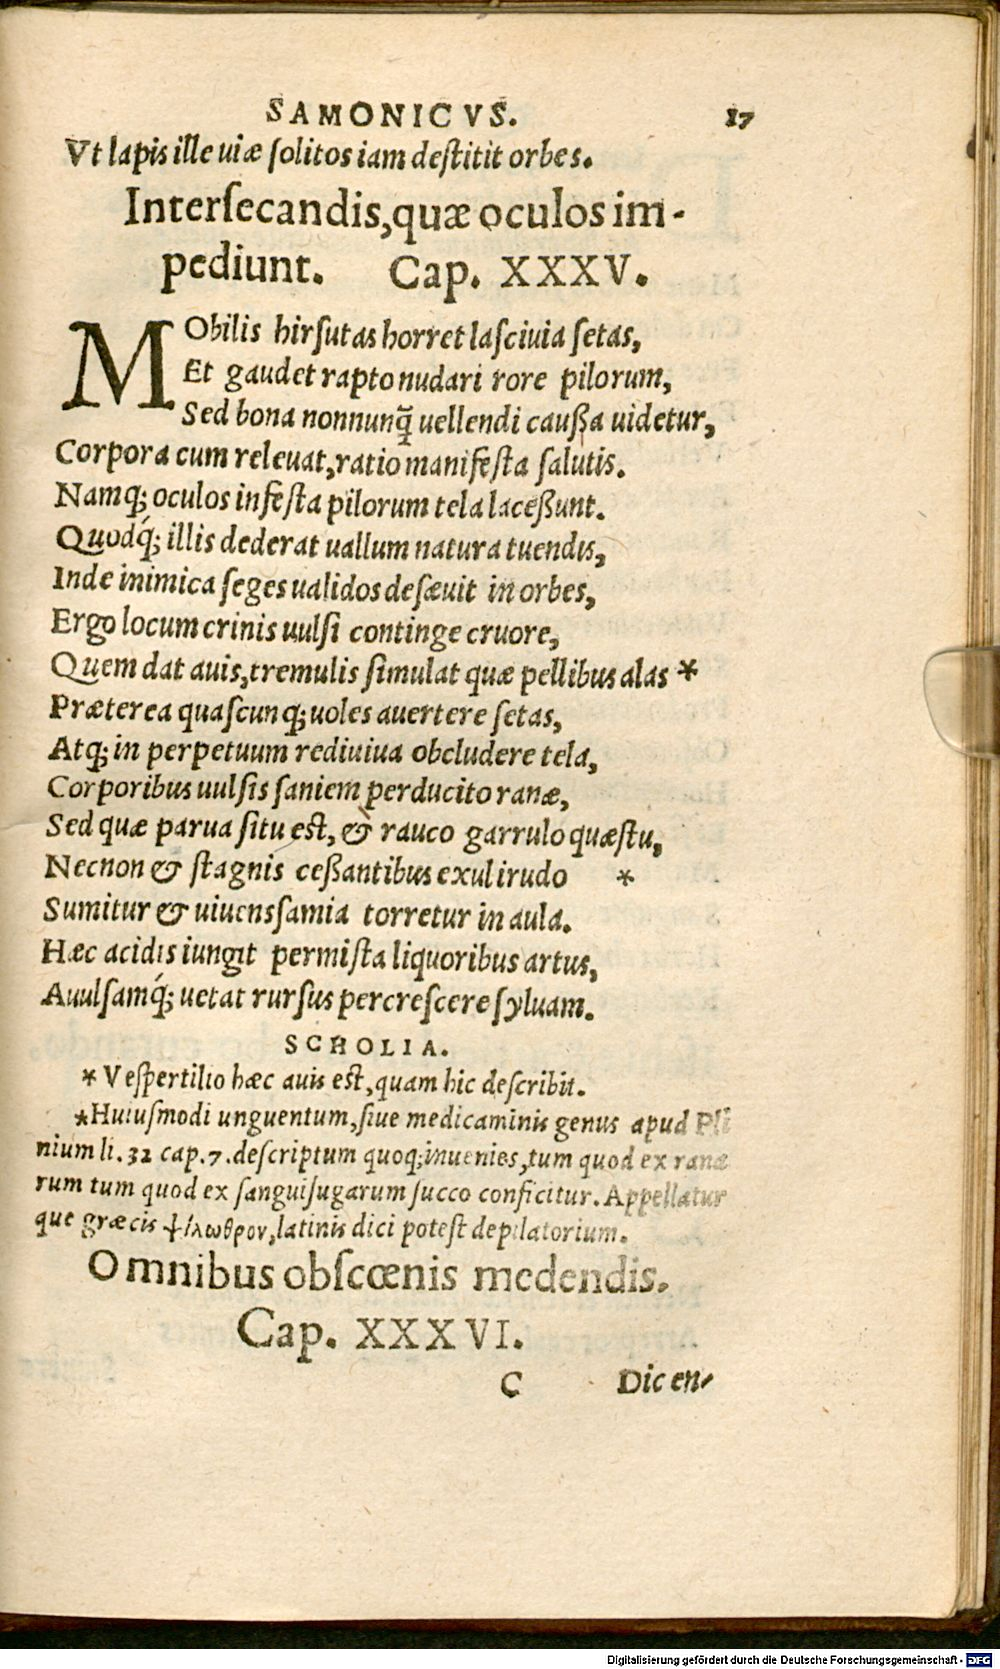 SAMONICVS. 17
Vt lapis ille uiæ ſolitos iam deſtitit orbes.
Interſecandis, quæ oculos im-
pediunt. Cap. XXXV.
MObilis hirſutas horret laſciuia ſetas,
Et gaudet rapto nudari rore pilorum,
Sed bona nonnunq̃ uellendi cauſſa uidetur,
Corpora cum releuat, ratio manifeſta ſalutis.
Namq; oculos infeſta pilorum tela laceſſunt.
Quodq́; illis dederat uallum natura tuendis,
Inde inimica ſeges ualidos deſæuit in orbes,
Ergo locum crinis uulſi continge cruore,
Quem dat auis, tremulis ſimulat quæ pellibus alas *
Præterea quaſcunq; uoles auertere ſetas,
Atq; in perpetuum rediuiua obcludere tela,
Corporibus uulſis ſaniem perducito ranæ,
Sed quæ parua ſitu eſt, & rauco garrulo quæſtu,
Necnon & ſtagnis ceſſantibus exul irudo *
Sumitur & uiuens ſamia torretur in aula.
Hæc acidis iungit permiſta liquoribus artus,
Auulſamq́; uetat rurſus percreſcere ſyluam.
SCHOLIA.
* Veſpertilio hæc auis eſt, quam hic deſcribit.
*Huiuſmodi unguentum, ſiue medicaminis genus apud Pli
nium li. 32 cap. 7. deſcriptum quoq; inuenies, tum quod ex ranæ
rum tum quod ex ſanguiſugarum ſucco conficitur. Appellatur
que græcis ψίλωθρον, latinis dici poteſt depilatorium.
Omnibus obſcœnis medendis.
Cap. XXXVI.
C Dicen-
Digitalisierung gefördert durch die Deutsche Forschungsgemeinschaft - DFG